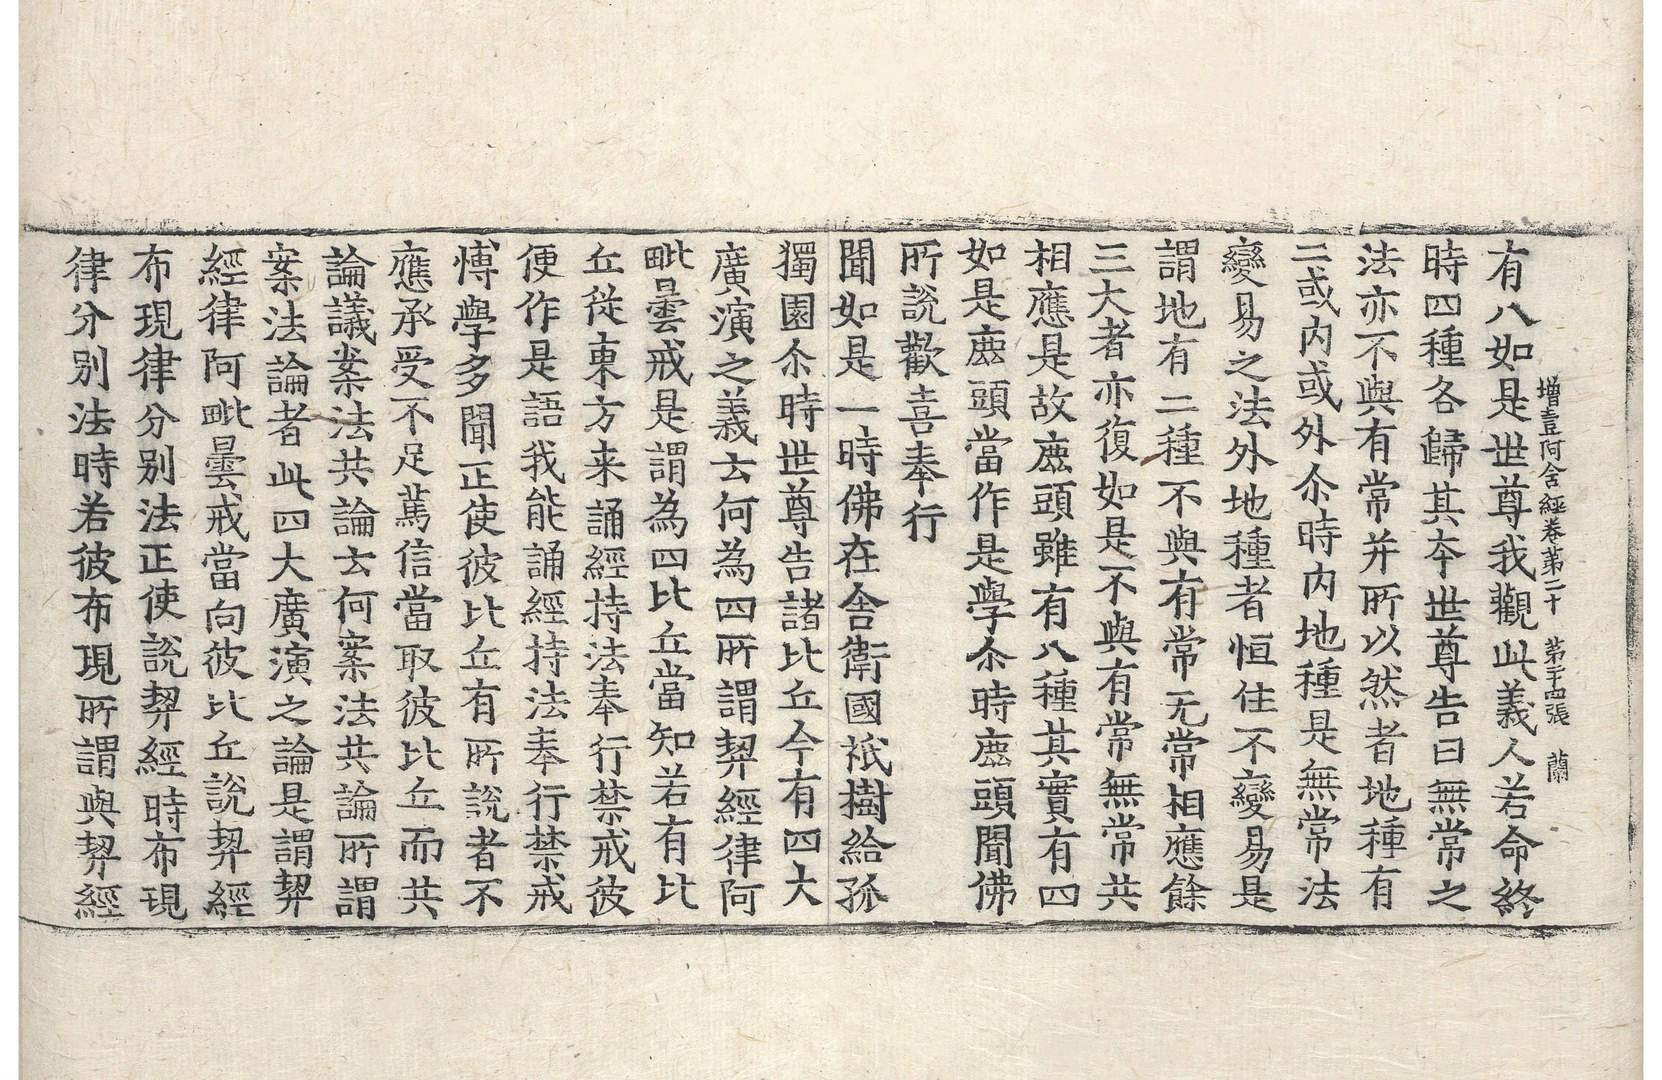 增壹阿含經卷第二十　第二十四張　蘭
有八如是世尊我觀此義人若命終
時四種各歸其夲世尊告曰無常之
法亦不與有常并所以然者地種有
二或內或外尒時內地種是無常法
變易之法外地種者恒住不變易是
謂地有二種不與有常无常相應餘
三大者亦復如是不與有常無常共
相應是故鹿頭雖有八種其實有四
如是鹿頭當作是學尒時鹿頭聞佛
所說歡喜奉行
聞如是一時佛在舍衛國祇樹給孤
獨園尒時世尊告諸比丘今有四大
廣演之義云何為四所謂契經律阿
毗曇戒是謂為四比丘當知若有比
丘從東方来誦經持法奉行禁戒彼
便作是語我能誦經持法奉行禁戒
博學多聞正使彼比丘有所說者不
應承受不足篤信當取彼比丘而共
論議案法共論云何案法共論所謂
案法論者此四大廣演之論是謂契
經律阿毗曇戒當向彼比丘說契經
布現律分別法正使說契經時布現
律分別法時若彼布現所謂與契經